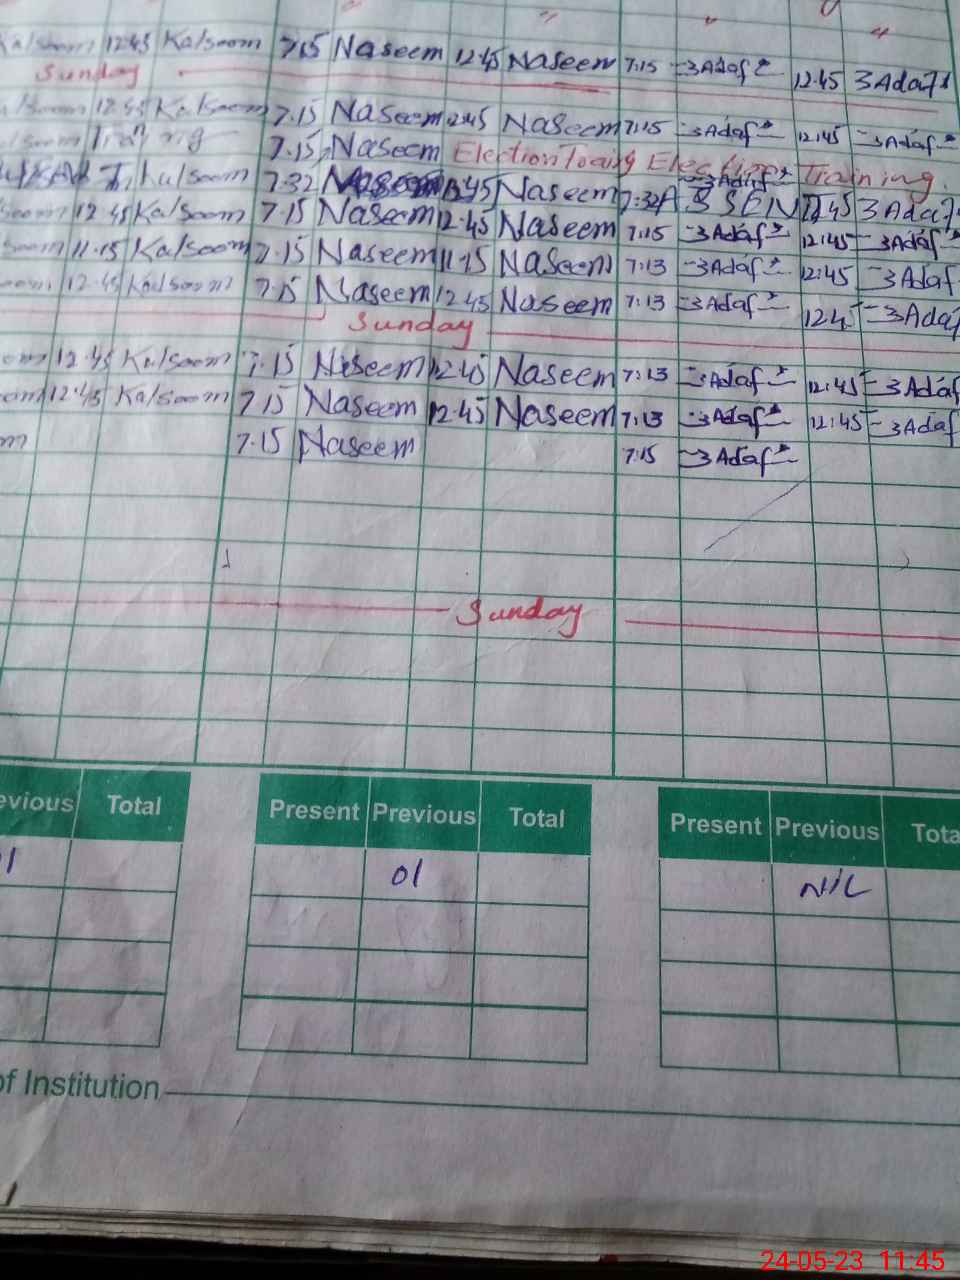 Kalsoom 12:45 Kalsoom 7.15 Naseem 12:45 Naseem 7:15 3Adaf 12:45 3Adaf
Sunday
12:45 Kalsoom 7.15 Naseem 12:45 Naseem 7:15 3Adaf 12:45 3Adaf
7.15 Naseem Election Training.
Kalsoom 7:32 Naseem 7:32 3Adaf
soom 12.45 Kalsoom 7.15 Naseem 12.45 Naseem 7:15 3Adaf 12:45 3Adaf
soom 11.15 Kalsoom 7.15 Naseem 11.15 Naseem 7:13 3Adaf 12:45 3Adaf
12.45 Kalsoom 7.15 Naseem 12.45 Naseem 7:13 3Adaf 12:45 3Adaf
Sunday
om 12.45 Kalsoom 7.15 Naseem 12.45 Naseem 7:13 3Adaf 12:45 3Adaf
om 12.45 Kalsoom 7.15 Naseem 12.45 Naseem 7:13 3Adaf 12:45 3Adaf
m 7.15 Naseem 7:15 3Adaf
Sunday
evious Total Present Previous Total Present Previous Tota
01 NIL
of Institution
24-05-23 11:45